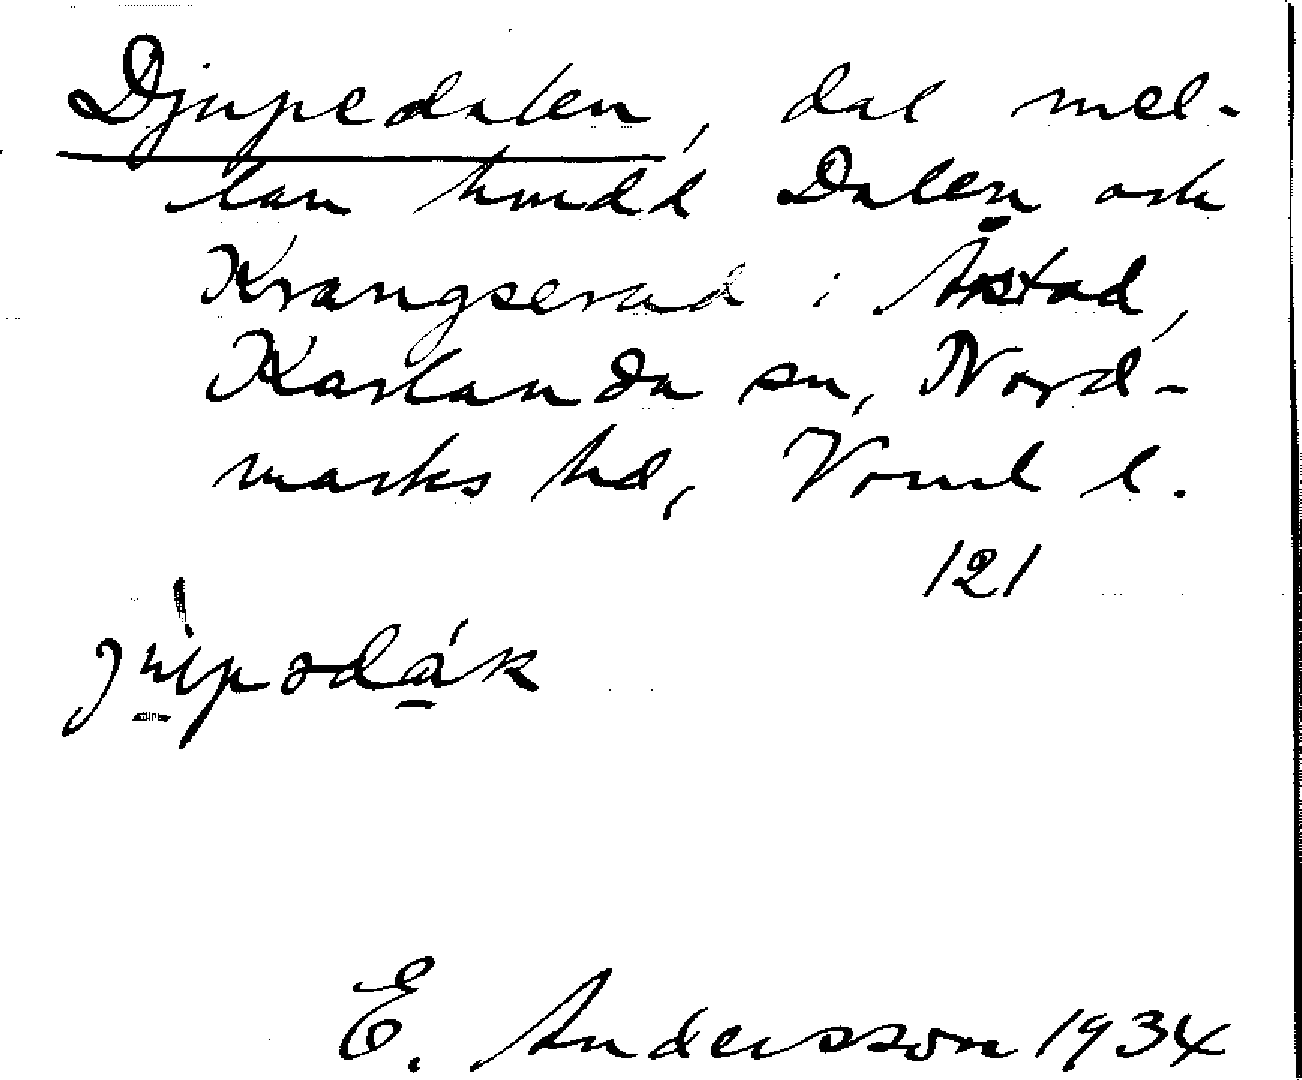 Djupedalen, dal mel-
lan hmdd Dalen och
Krangserud i Årstad,
Karlanda sn, Nord-
marks hd, Vrml l.
121
E. Andersson 1934